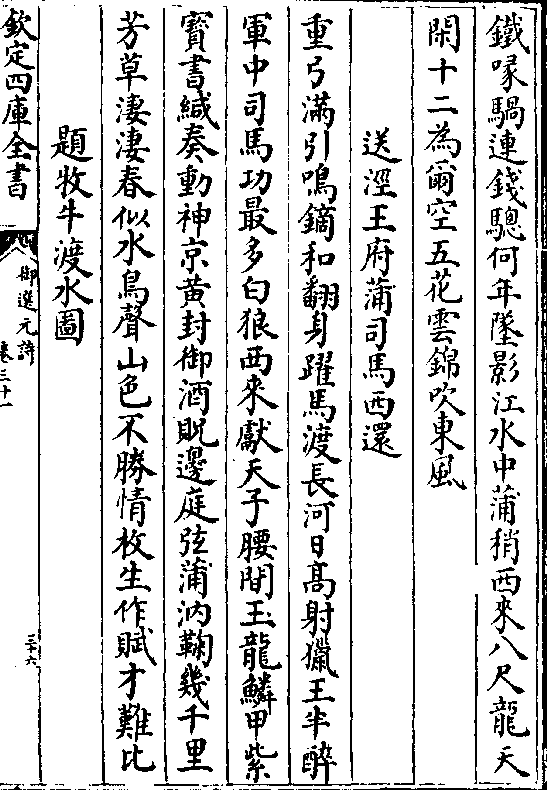 鐵喙騧連錢驄何年墜影江水中蒲稍西來八尺龍天
閑十二為爾空五花雲錦吹東風
送涇王府蒲司馬西還
重弓滿引鳴鏑和翻身躍馬渡長河日髙射獵王半醉
軍中司馬功最多白狼西來獻天子腰間玉龍鱗甲紫
寳書緘奏動神京黄封御酒貺邊庭弦蒲汭鞠幾千里
芳草淒淒春似水鳥聲山色不勝情枚生作賦才難比
題牧牛渡水圖
欽定四庫全書
御選元詩
卷三十一
三十六